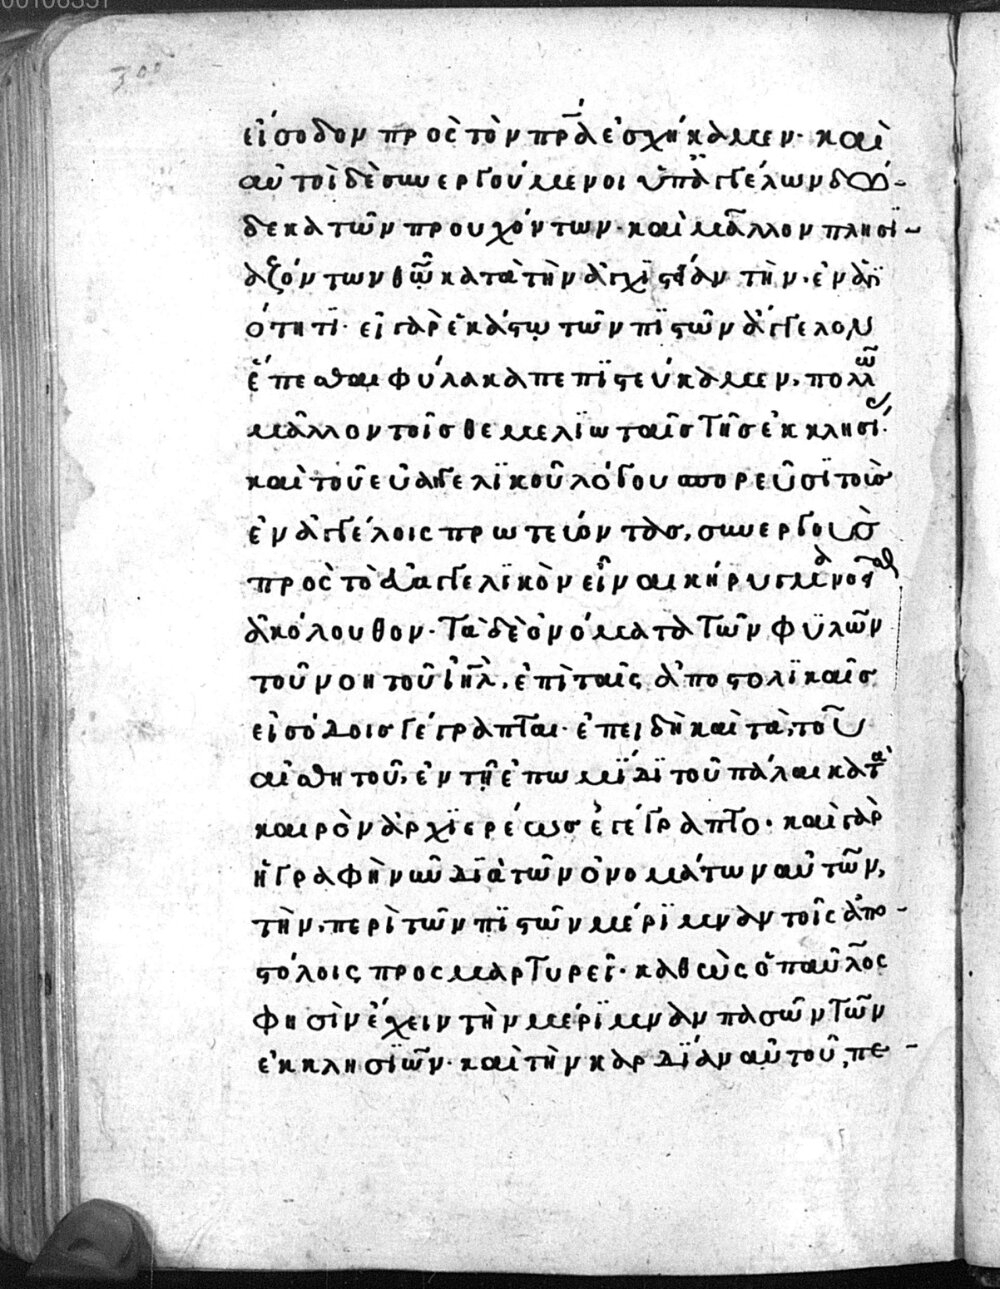 00106331
300
εἴσοδον πρὸς τὸν πρ̅α ἐσχήκαμεν· καὶ
αὐτοὶ δὲ συνεργούμενοι ὑπ' ἀγγέλων δώ-
δεκα τῶν προυχόντων· καὶ μᾶλλον πλησϊ-
αζόντων θῶ κατὰ τὴν ἀγχϊστείαν τὴν ἐν ἁγϊ
ότητϊ· εἰ γὰρ ἑκάστω τῶν πϊστῶν ἄγγελον
ἕπεσθαι φύλακα πεπϊστεύκαμεν, πολλῶ
μᾶλλον τοῖς θεμελϊώταις τῆς ἐκκλησί
καὶ τοῦ εὐαγγελϊκοῦ λόγου σπορεῦσϊ τοὺς
ἐν ἀγγέλοις πρωτεύοντας, συνεργοὺς
πρὸς τὸ εὐαγγελϊκὸν εἶναι κήρυγμα νοεῖσθαι
ἀκόλουθον· Τὰ δὲ ὀνόματα τῶν φϋλῶν
τοῦ νοητοῦ ἰη̅λ, ἐπὶ ταῖς ἀποστολϊκαῖς
εἰσόδοις γέγραπται· ἐπειδὴ καὶ τὰ, τοῦ
αἰσθητοῦ, ἐν τῆ ἐπωμϊδϊ τοῦ πάλαι κατὰ
καιρὸν ἀρχϊερέως ἐγέγραπτο· καὶ γὰρ
ἡ γραφὴ νῦν δϊὰ τῶν ὀνομάτων αὐτῶν,
τὴν, περὶ τῶν πϊστῶν μέρϊμναν τοῖς ἀπο-
στόλοις προσμαρτυρεῖ· καθὼς ὁ παῦλος
φησὶν ἔχειν τὴν μέρϊμναν πασῶν τῶν
ἐκκλησϊῶν· καὶ τὴν καρδϊαν αὐτοῦ, πε-